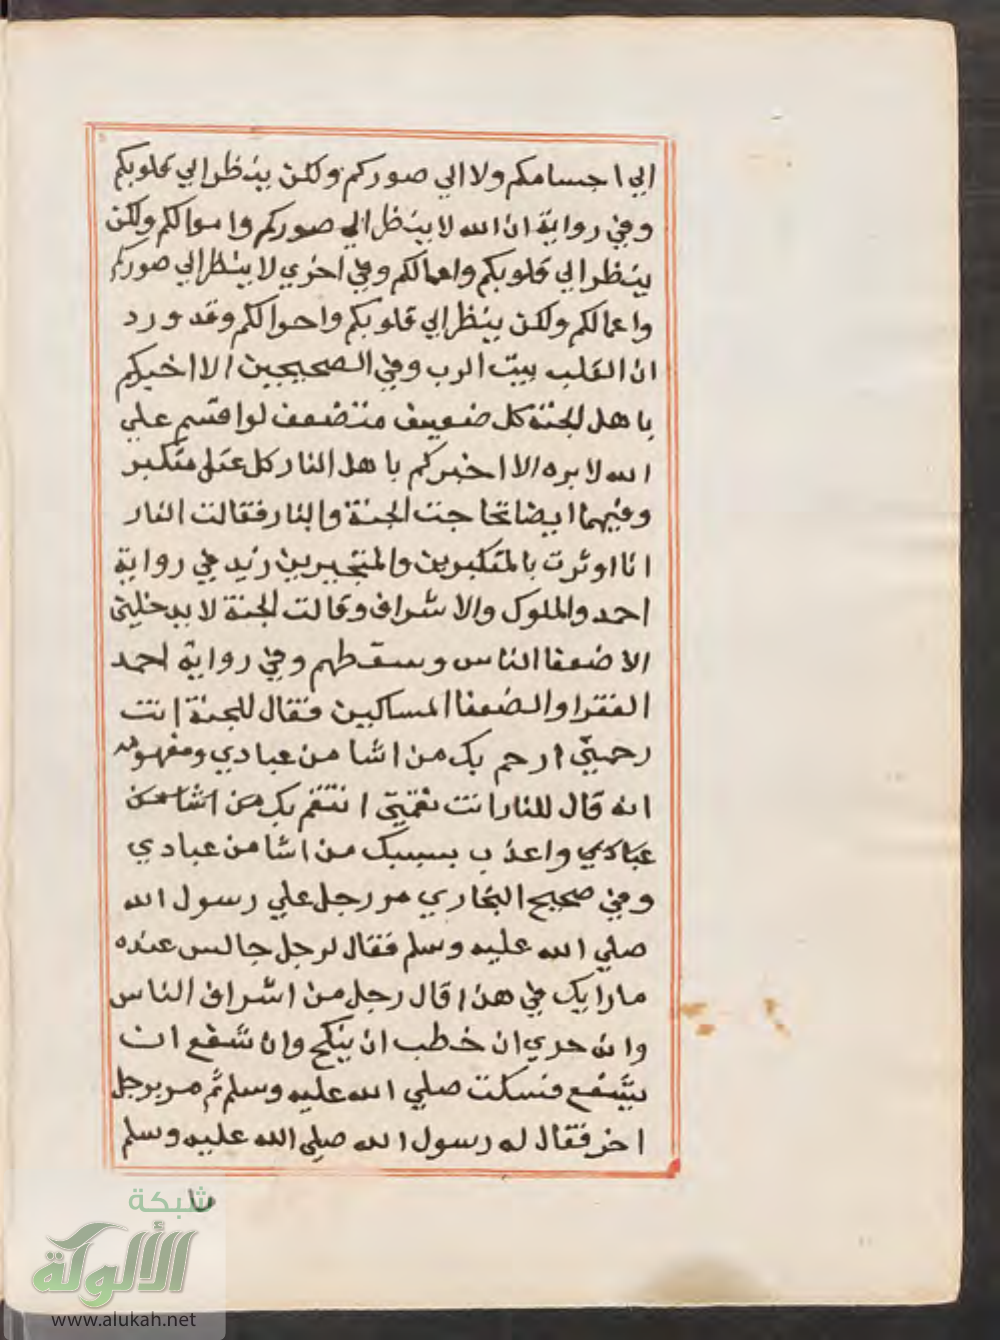 الي اجسامكم ولا الي صوركم ولكن ينظر الي قلوبكم
وفي رواية ان الله لا ينظر الي صوركم واموالكم ولكن
ينظر الي قلوبكم واعمالكم وفي اخري لا ينظر الي صوركم
واعمالكم ولكن ينظر الي قلوبكم واحوالكم وقد ورد
ان القلب بيت الرب وفي الصحيحين الا اخبركم
باهل الجنة كل ضعيف متضعف لو اقسم علي
الله لابره الا اخبركم باهل النار كل عتل متكبر
وفيهما ايضا تحاجت الجنة والنار فقالت النار
انا اوثرت بالمتكبرين والمتجبرين زيد في رواية
احمد والملوك والاشراف وقالت الجنة لا يدخلني
الا ضعفا الناس وسقطهم وفي رواية احمد
الفقرا والضعفا المساكين فقال للجنة انت
رحمتي ارحم بك من اشا من عبادي ومفهومه
انه قال للنار انت نقمتي انتقم بك من اشا من
عبادي واعذب بسببك من اشا من عبادي
وفي صحيح البخاري مر رجل علي رسول الله
صلي الله عليه وسلم فقال لرجل جالس عنده
ما رايك في هذا قال رجل من اشراف الناس
والله حري ان خطب ان ينكح وان شفع ان
يشفع فسكت صلي الله عليه وسلم ثم مر برجل
اخر فقال له رسول الله صلي الله عليه وسلم
شبكة
الألوكة
www.alukah.net